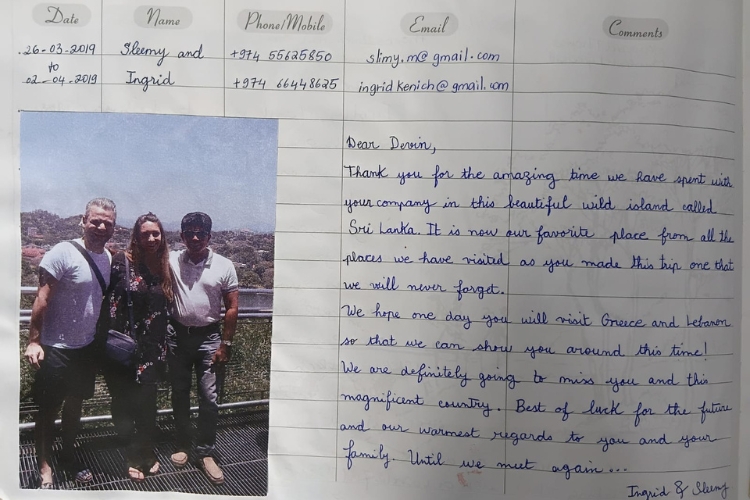 Date Name Phone/Mobile Email Comments
26-03-2019 Sleemy and +974 55625850 slimy.m@gmail.com
to
02-04-2019 Ingrid +974 66448625 ingridkenich@gmail.com
Dear Devin,
Thank you for the amazing time we have spent with
your company in this beautiful wild island called
Sri Lanka. It is now our favorite place from all the
places we have visited as you made this trip one that
we will never forget.
We hope one day you will visit Greece and Lebanon
so that we can show you around this time!
We are definitely going to miss you and this
magnificent country. Best of luck for the future
and our warmest regards to you and your
family. Until we meet again...
Ingrid & Sleemy